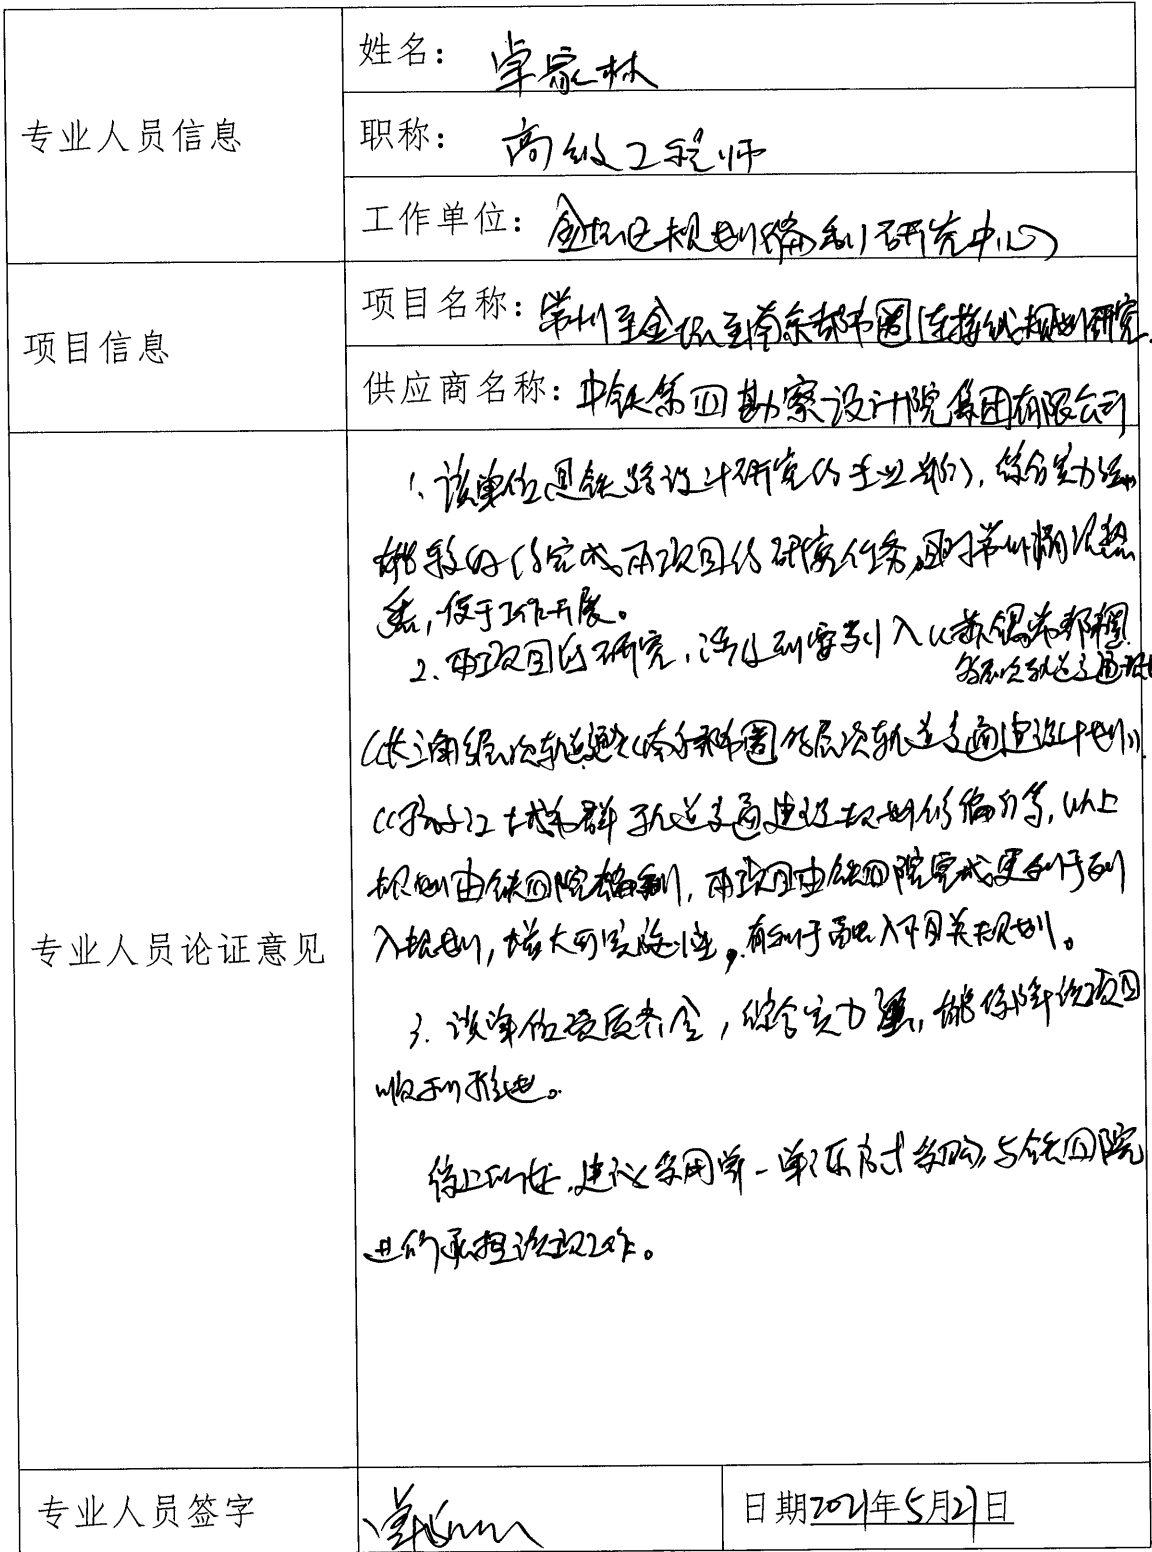 专业人员信息
姓名：卓家林
职称：高级工程师
工作单位：金坛区规划编制研究中心
项目信息
项目名称：常州至金坛至南京都市圈连接线规划研究
供应商名称：中铁第四勘察设计院集团有限公司
专业人员论证意见
1、该单位是铁路设计研究的专业部门，综合实力强，
能较好的完成本项目的研究任务，且对常州情况熟
悉，便于工作开展。
2、本项目的研究，涉及到要列入《苏锡常都市圈
多层次轨道交通规划
《长三角多层次轨道交通》《南京都市圈多层次轨道交通建设计划》
城市群轨道交通建设规划修编》等，以上
规划由铁四院编制，本项目由铁四院完成更有利于列
入规划，增大可实施性，有利于融入相关规划。
3. 该单位资质齐全，综合实力强，能保障该项目
顺利推进。
综上所述，建议采用单一来源方式采购，与铁四院
承担该项工作。
专业人员签字
日期2021年5月21日